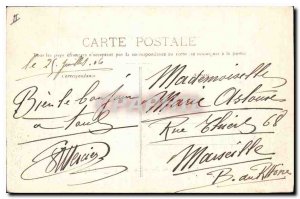 CARTE POSTALE
Tous les pays étrangers n'acceptent pas la correspondance au recto, se renseigner à la poste
le 25 juillet 06
Correspondance
Bien le bonjour
a tous
Mademoiselle
Marie
Rue Thiers 68
Marseille
B. du Rhône